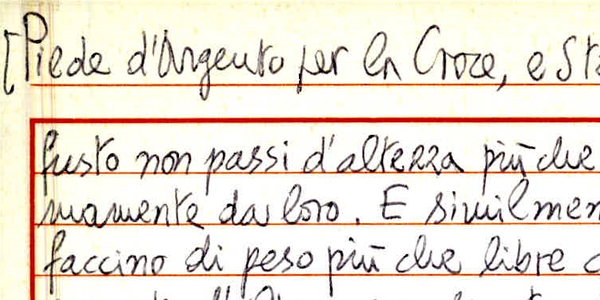 [Piede d'Argento per la Croce, e Sta
fusto non passi d'altezza più che
mamente da loro. E similmen
faccino di peso più che libre